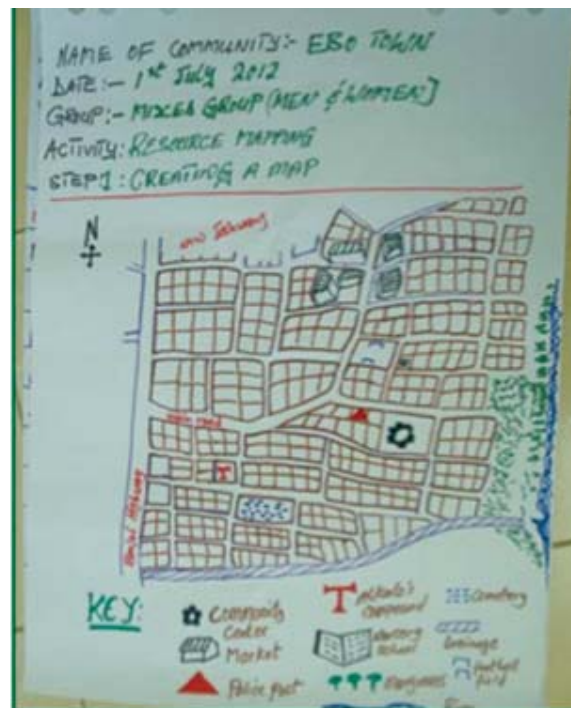 NAME OF COMMUNITY:- EBO TOWN
DATE:- 1ST JULY 2012
GROUP:- MIXED GROUP (MEN & WOMEN]
ACTIVITY: RESOURCE MAPPING
STEP1: CREATING A MAP
N
main road
KEY:
Community
Center
Market
Police post
T
Alkalo's
compound
nursery
school
Mangroves
Cemetery
Drainage
football
field